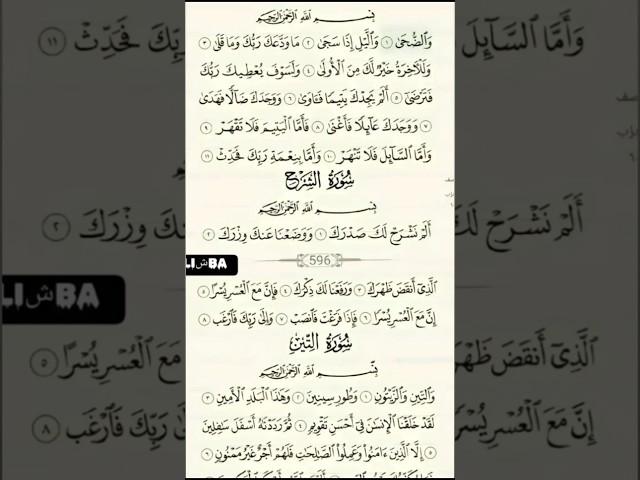 بِسْمِ اللَّهِ الرَّحْمَٰنِ الرَّحِيمِ
وَٱلضُّحَىٰ ١ وَٱلَّيْلِ إِذَا سَجَىٰ ٢ مَا وَدَّعَكَ رَبُّكَ وَمَا قَلَىٰ ٣
وَلَلْـَٔاخِرَةُ خَيْرٌ لَّكَ مِنَ ٱلْأُولَىٰ ٤ وَلَسَوْفَ يُعْطِيكَ رَبُّكَ
فَتَرْضَىٰٓ ٥ أَلَمْ يَجِدْكَ يَتِيمًا فَـَٔاوَىٰ ٦ وَوَجَدَكَ ضَآلًّا فَهَدَىٰ
٧ وَوَجَدَكَ عَآئِلًا فَأَغْنَىٰ ٨ فَأَمَّا ٱلْيَتِيمَ فَلَا تَقْهَرْ ٩
وَأَمَّا ٱلسَّآئِلَ فَلَا تَنْهَرْ ١٠ وَأَمَّا بِنِعْمَةِ رَبِّكَ فَحَدِّثْ ١١
سُورَةُ الشَّرْحِ
بِسْمِ اللَّهِ الرَّحْمَٰنِ الرَّحِيمِ
أَلَمْ نَشْرَحْ لَكَ صَدْرَكَ ١ وَوَضَعْنَا عَنكَ وِزْرَكَ ٢
596
LIشBA
ٱلَّذِىٓ أَنقَضَ ظَهْرَكَ ٣ وَرَفَعْنَا لَكَ ذِكْرَكَ ٤ فَإِنَّ مَعَ ٱلْعُسْرِ يُسْرًا ٥
إِنَّ مَعَ ٱلْعُسْرِ يُسْرًا ٦ فَإِذَا فَرَغْتَ فَٱنصَبْ ٧ وَإِلَىٰ رَبِّكَ فَٱرْغَب ٨
سُورَةُ التِّينِ
بِّسْمِ اللَّهِ الرَّحْمَٰنِ الرَّحِيمِ
وَٱلتِّينِ وَٱلزَّيْتُونِ ١ وَطُورِ سِينِينَ ٢ وَهَٰذَا ٱلْبَلَدِ ٱلْأَمِينِ ٣
لَقَدْ خَلَقْنَا ٱلْإِنسَٰنَ فِىٓ أَحْسَنِ تَقْوِيمٍ ٤ ثُمَّ رَدَدْنَٰهُ أَسْفَلَ سَٰفِلِينَ
٥ إِلَّا ٱلَّذِينَ ءَامَنُوا۟ وَعَمِلُوا۟ ٱلصَّٰلِحَٰتِ فَلَهُمْ أَجْرٌ غَيْرُ مَمْنُونٍ ٦